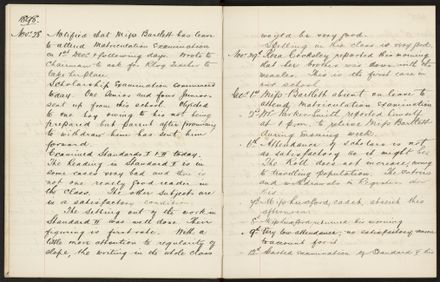 1898.
Nov. 28 Notified that Miss Bartlett has leave
to attend Matriculation Examination
on 1st Dec. & following days. Wrote to
Chairman to ask for Relvg Teacher to
take her place.
Scholarship Examination commenced
today. One Senior and four Juniors
sent up from this school. Objected
to one boy owing to his not being
prepared but parent after promising
to withdraw him has sent him
forward.
Examined Standards I & II today.
The Reading in Standard I is in
some cases very bad and there is
not one really good reader in
the class. The other subjects are
in a satisfactory condition.
The setting out of the work in
Standard II was well done. Their
figuring is first rate. With a
little more attention to regularity of
slope, the writing in the whole class
would be very good.
Spelling in this class is very good.
Nov. 29th Rose Cooksley reported this morning
that her brother was down with the
measles. This is the first case in
our school.
Dec. 1st Miss Bartlett absent on leave to
attend Matriculation Examination
Mr. Parker Smith reported himself
at 1 p.m. to relieve Miss Bartlett
during ensuing week.
6th Attendance of scholars is not
as satisfactory as it might be.
The Roll does not increase, owing
to travelling population. The entries
and withdrawals in Register show
this.
7th Miss Hulford, cadet, absent this
afternoon.
8 Miss Hulford returned this morning
9th Very low attendance; no satisfactory
to account for it
12th Started examination of Standard V this